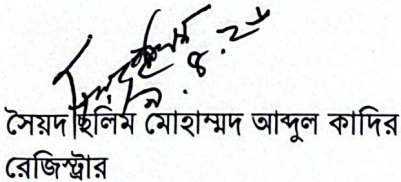 সৈয়দ ছলিম মোহাম্মদ আব্দুল কাদির
রেজিস্ট্রার